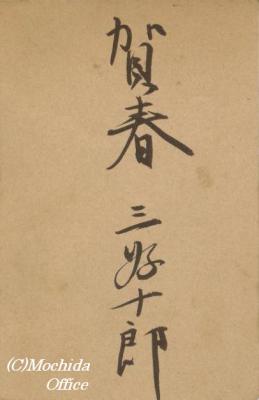 賀春
三好十郎
(C)Mochida
Office